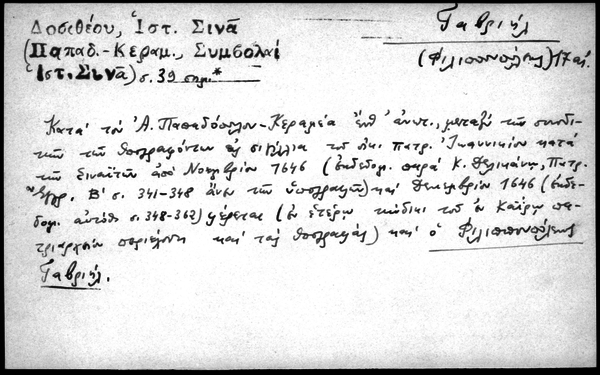 Δοσιθέου, Ἱστ. Σινᾶ
(Παπαδ.-Κεραμ., Συμβολαί
Ἱστ. Σινᾶ) σ. 39 σημ.*
Γαβριήλ
(Φιλιππουπόλεως) 17 αἰ.
Κατά τόν Ἀ. Παπαδόπουλον-Κεραμέα ἔνθ' ἀνωτ., μεταξύ τῶν συνοδι-
κῶν τῶν ὑπογραψάντων εἰς σιγίλλια τοῦ οἰκ. πατρ. Ἰωαννικίου κατά
τῶν Σιναϊτῶν ἀπό Νοεμβρίου 1646 (ἐκδεδομ. παρά Κ. Δελικάνῃ, Πατρ.
Ἔγγρ. Β' σ. 341-348 ἄνευ τῶν ὑπογραφῶν) καί Δεκεμβρίου 1646 (ἐκδε-
δομ. αὐτόθι σ. 348-362) φέρεται (ἐν ἑτέρῳ κώδικι τοῦ ἐν Καΐρῳ πα-
τριαρχείου περιέχοντι καί τάς ὑπογραφάς) καί ὁ Φιλιππουπόλεως
Γαβριήλ.